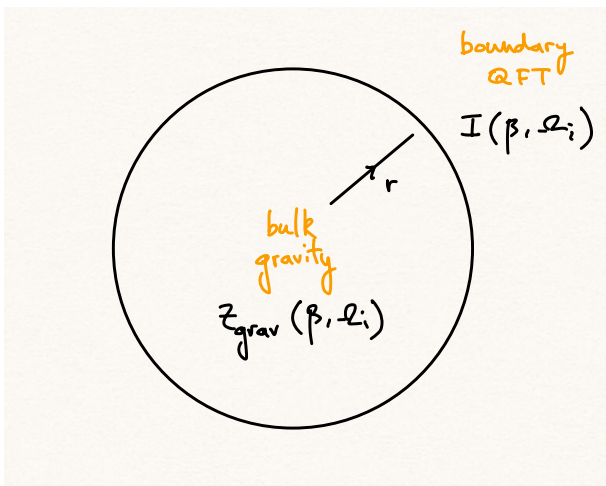 boundary
QFT
I(β, Ωᵢ)
r
bulk
gravity
Z_grav (β, Ωᵢ)